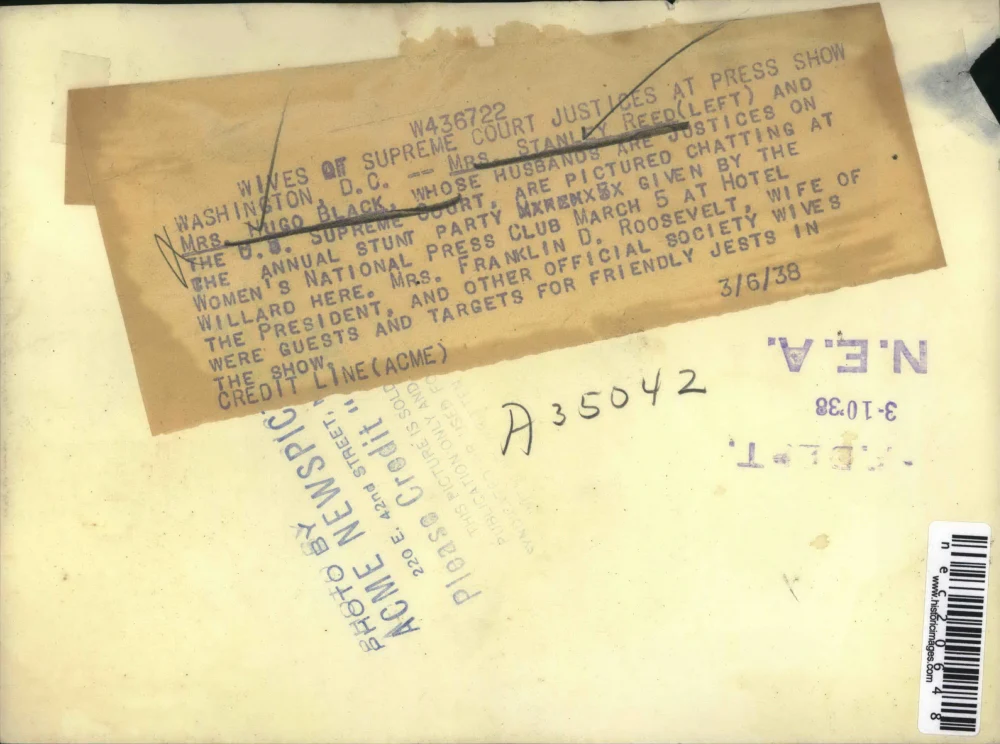 W436722
WIVES OF SUPREME COURT JUSTICES AT PRESS SHOW
WASHINGTON, D.C. -- MRS. STANLEY REED(LEFT) AND
MRS. HUGO BLACK, WHOSE HUSBANDS ARE JUSTICES ON
THE U.S. SUPREME COURT, ARE PICTURED CHATTING AT
THE ANNUAL STUNT PARTY GIVEN BY THE
WOMEN'S NATIONAL PRESS CLUB MARCH 5 AT HOTEL
WILLARD HERE. MRS. FRANKLIN D. ROOSEVELT, WIFE OF
THE PRESIDENT, AND OTHER OFFICIAL SOCIETY WIVES
WERE GUESTS AND TARGETS FOR FRIENDLY JESTS IN
THE SHOW.
CREDIT LINE(ACME) 3/6/38
A35042
PHOTO BY
ACME NEWSPIC
220 E. 42nd STREET,
Please Credit "
THIS PICTURE IS SOLD
PUBLICATION ONLY AND
N.E.A.
3-10'38
nec20648
www.historicimages.com